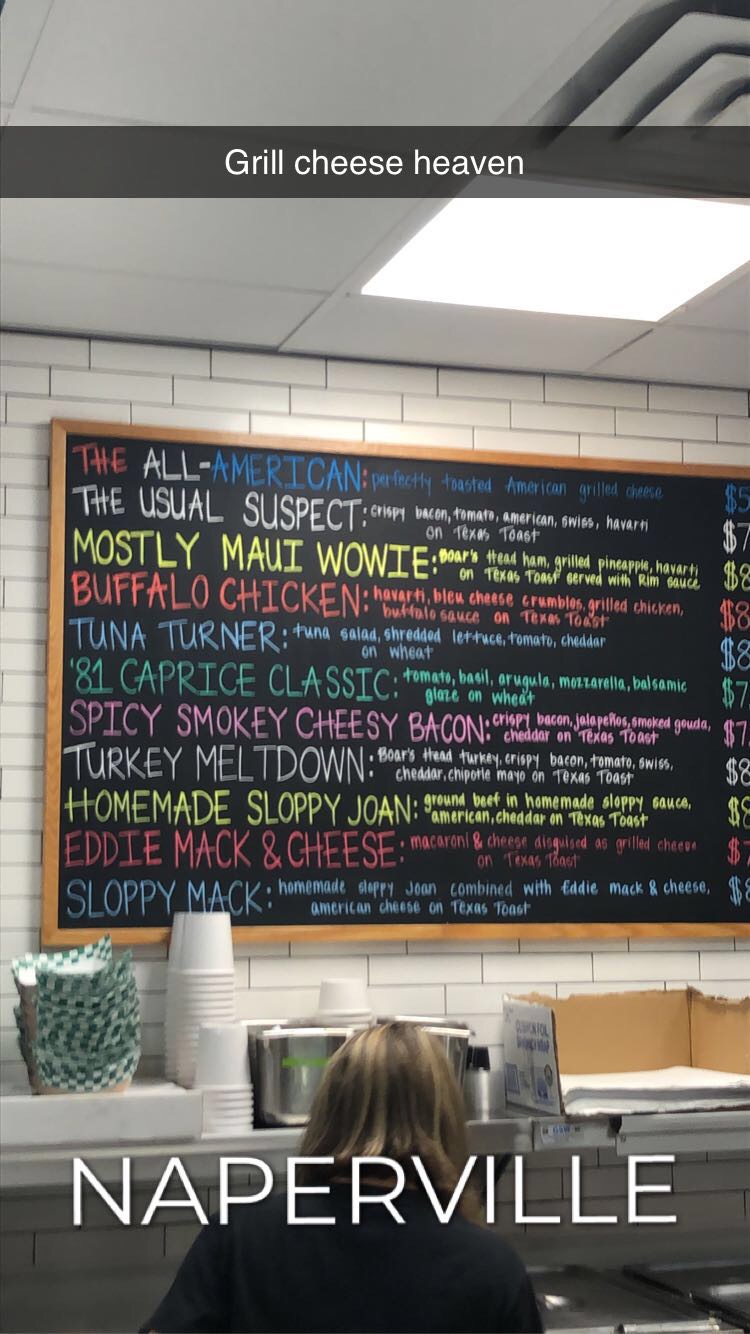 Grill cheese heaven
THE ALL-AMERICAN: perfectly toasted American grilled cheese $5
THE USUAL SUSPECT: crispy bacon, tomato, american, swiss, havarti $7
on Texas Toast
MOSTLY MAUI WOWIE: Boar's Head ham, grilled pineapple, havarti $8
on Texas Toast served with Rim sauce
BUFFALO CHICKEN: havarti, bleu cheese crumbles, grilled chicken, $8
buffalo sauce on Texas Toast
TUNA TURNER: tuna salad, shredded lettuce, tomato, cheddar $8
on wheat
'81 CAPRICE CLASSIC: tomato, basil, arugula, mozzarella, balsamic $7
glaze on wheat
SPICY SMOKEY CHEESY BACON: crispy bacon, jalapeños, smoked gouda, $7
cheddar on Texas Toast
TURKEY MELTDOWN: Boar's Head turkey, crispy bacon, tomato, swiss, $8
cheddar, chipotle mayo on Texas Toast
HOMEMADE SLOPPY JOAN: ground beef in homemade sloppy sauce, $8
american, cheddar on Texas Toast
EDDIE MACK & CHEESE: macaroni & cheese disguised as grilled cheese $7
on Texas Toast
SLOPPY MACK: homemade sloppy Joan combined with Eddie mack & cheese, $
american cheese on Texas Toast
NAPERVILLE